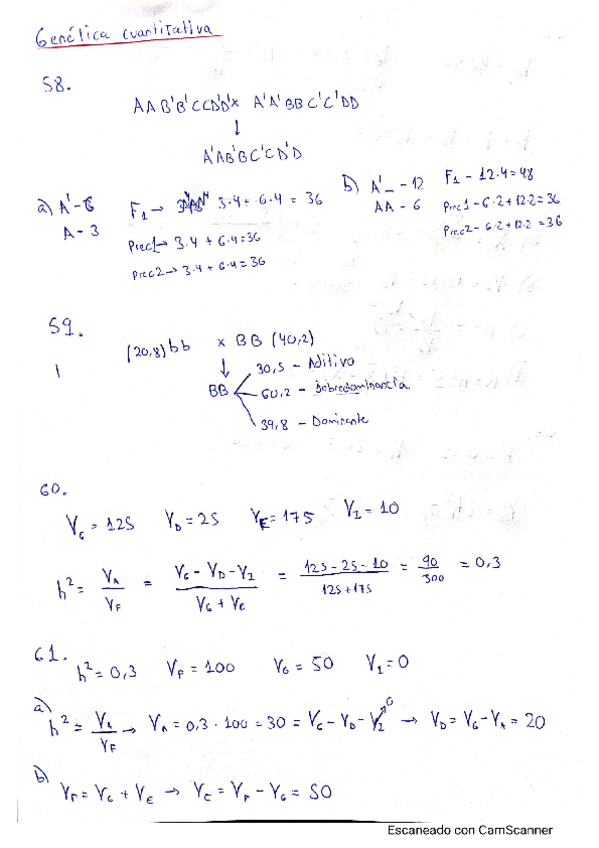 Genética cuantitativa
58.
AA B'B'CCD'D' x A'A'BBC'C'DD
↓
A'AB'BC'CD'D
a) A' - 6
A - 3
F1 → 3·4 + 6·4 = 36
Prec1 → 3·4 + 6·4 = 36
Prec2 → 3·4 + 6·4 = 36
b) A'_ - 12
AA - 6
F1 - 12·4 = 48
Prec1 - 6·2 + 12·2 = 36
Prec2 - 6·2 + 12·2 = 36
59.
1
(20,8) bb x BB (40,2)
↓
BB
30,5 - Aditivo
60,2 - Sobredominancia
39,8 - Dominante
60.
V_G = 125 V_D = 25 V_E = 175 V_I = 10
h² = V_A / V_F = (V_G - V_D - V_I) / (V_G + V_E) = (125 - 25 - 10) / (125 + 175) = 90 / 300 = 0.3
61.
h² = 0,3 V_P = 100 V_G = 50 V_I = 0
a) h² = V_A / V_F → V_A = 0,3 · 100 = 30 = V_G - V_D - V_I 0 → V_D = V_G - V_A = 20
b) V_P = V_G + V_E → V_E = V_P - V_G = 50
Escaneado con CamScanner